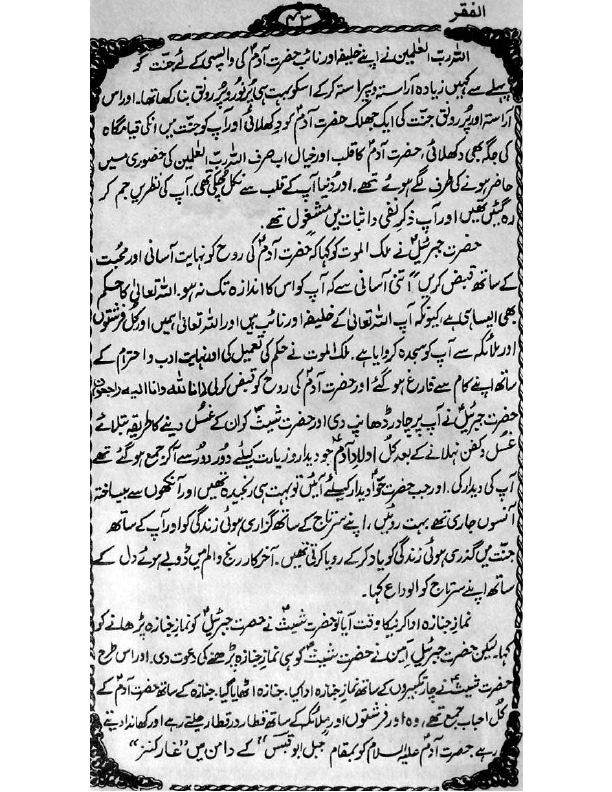 الفقر
۴۳
اللہ ربّ العٰلمین نے اپنے خلیفہ اور نائب حضرت آدمؑ کی واپسی کے لئے جنت کو
پہلے سے کہیں زیادہ آراستہ وپیراستہ کرکے اسکو بہت ہی پُر نور و پُر رونق بنا رکھا تھا۔ اور اس
آراستہ اور پُر رونق جنت کی ایک جھلک حضرت آدمؑ کو دکھلائی اور آپ کو جنت میں انکی قیام گاہ
کی جگہ بھی دکھلائی، حضرت آدمؑ کا قلب اور خیال اب صرف اللہ ربّ العٰلمین کی حضوری میں
حاضر ہونے کی طرف لگے ہوئے تھے۔ اور دُنیا آپ کے قلب سے نکل چکی تھی۔ آپ کی نظریں جم کر
رہ گئیں تھیں اور آپ ذکرِ نفی و اثبات میں مشغول تھے
حضرت جبرئیلؑ نے ملک الموت کو کہا کہ حضرت آدمؑ کی روح کو نہایت آسانی اور محبت
کے ساتھ قبض کریں۔ اتنی آسانی سے کہ آپ کو اس کا اندازہ تک نہ ہو۔ اللہ تعالیٰ کا حکم
بھی ایسا ہی ہے، کیونکہ آپ اللہ تعالیٰ کے خلیفہ اور نائب ہیں اور اللہ تعالیٰ ہمیں اور کُل فرشتوں
اور ملائکہ سے آپ کو سجدہ کروایا ہے۔ ملک الموت نے حکم کی تعمیل کی اور نہایت ادب و احترام کے
ساتھ اپنے کام سے فارغ ہو گئے اور حضرت آدمؑ کی روح کو قبض کر لی انا للّٰہ وانا الیہ راجعون
حضرت جبرئیلؑ نے آپ پر چادر ڈھانپ دی اور حضرت شیثؑ کو ان کے غسل دینے کا طریقہ بتلائے
غسل و کفن نہلانے کے بعد کُل اولادِ آدمؑ جو دیدار و زیارت کیلئے دور دور سے آکر جمع ہو گئے تھے
آپ کی دیدار کی۔ اور جب حضرت حوّا دیدار کیلئے آئیں تو بہت ہی رنجیدہ تھیں اور آنکھوں سے بیساختہ
آنسوں جاری تھے بہت روئیں، اپنے سرتاج کے ساتھ گزاری ہوئی زندگی کو اور آپ کے ساتھ
جنت میں گذری ہوئی زندگی کو یاد کرکے رویا کرتی تھیں۔ آخر کار رنج والم میں ڈوبے ہوئے دل کے
ساتھ اپنے سرتاج کو الوداع کہا۔
نمازِ جنازہ ادا کرنیکا وقت آیا تو حضرت شیثؑ نے حضرت جبرئیلؑ کو نمازِ جنازہ پڑھانے کو
کہا۔ لیکن حضرت جبرئیل امین نے حضرت شیثؑ کو ہی نمازِ جنازہ پڑھنے کی دعوت دی۔ اور اس طرح
حضرت شیثؑ نے چار تکبیروں کے ساتھ نمازِ جنازہ ادا کیا۔ جنازہ اٹھایا گیا۔ جنازہ کے ساتھ حضرت آدمؑ کے
کُل احباب جمع تھے، وہ اور فرشتوں اور ملائک کے ساتھ قطار در قطار چلتے رہے اور کھاندا دیتے
رہے۔ حضرت آدم علیہ السلام کو بمقام جبل ابو قبیس کے دامن میں "غار کنز"